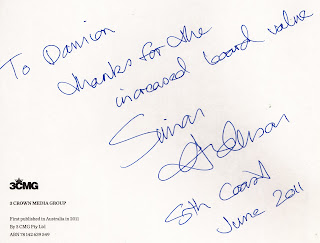 To Damion
thanks for the
increased board value
Simon
Anderson
Sth Coast
June 2011
3CMG
3 CROWN MEDIA GROUP
First published in Australia in 2011
By 3 CMG Pty Ltd